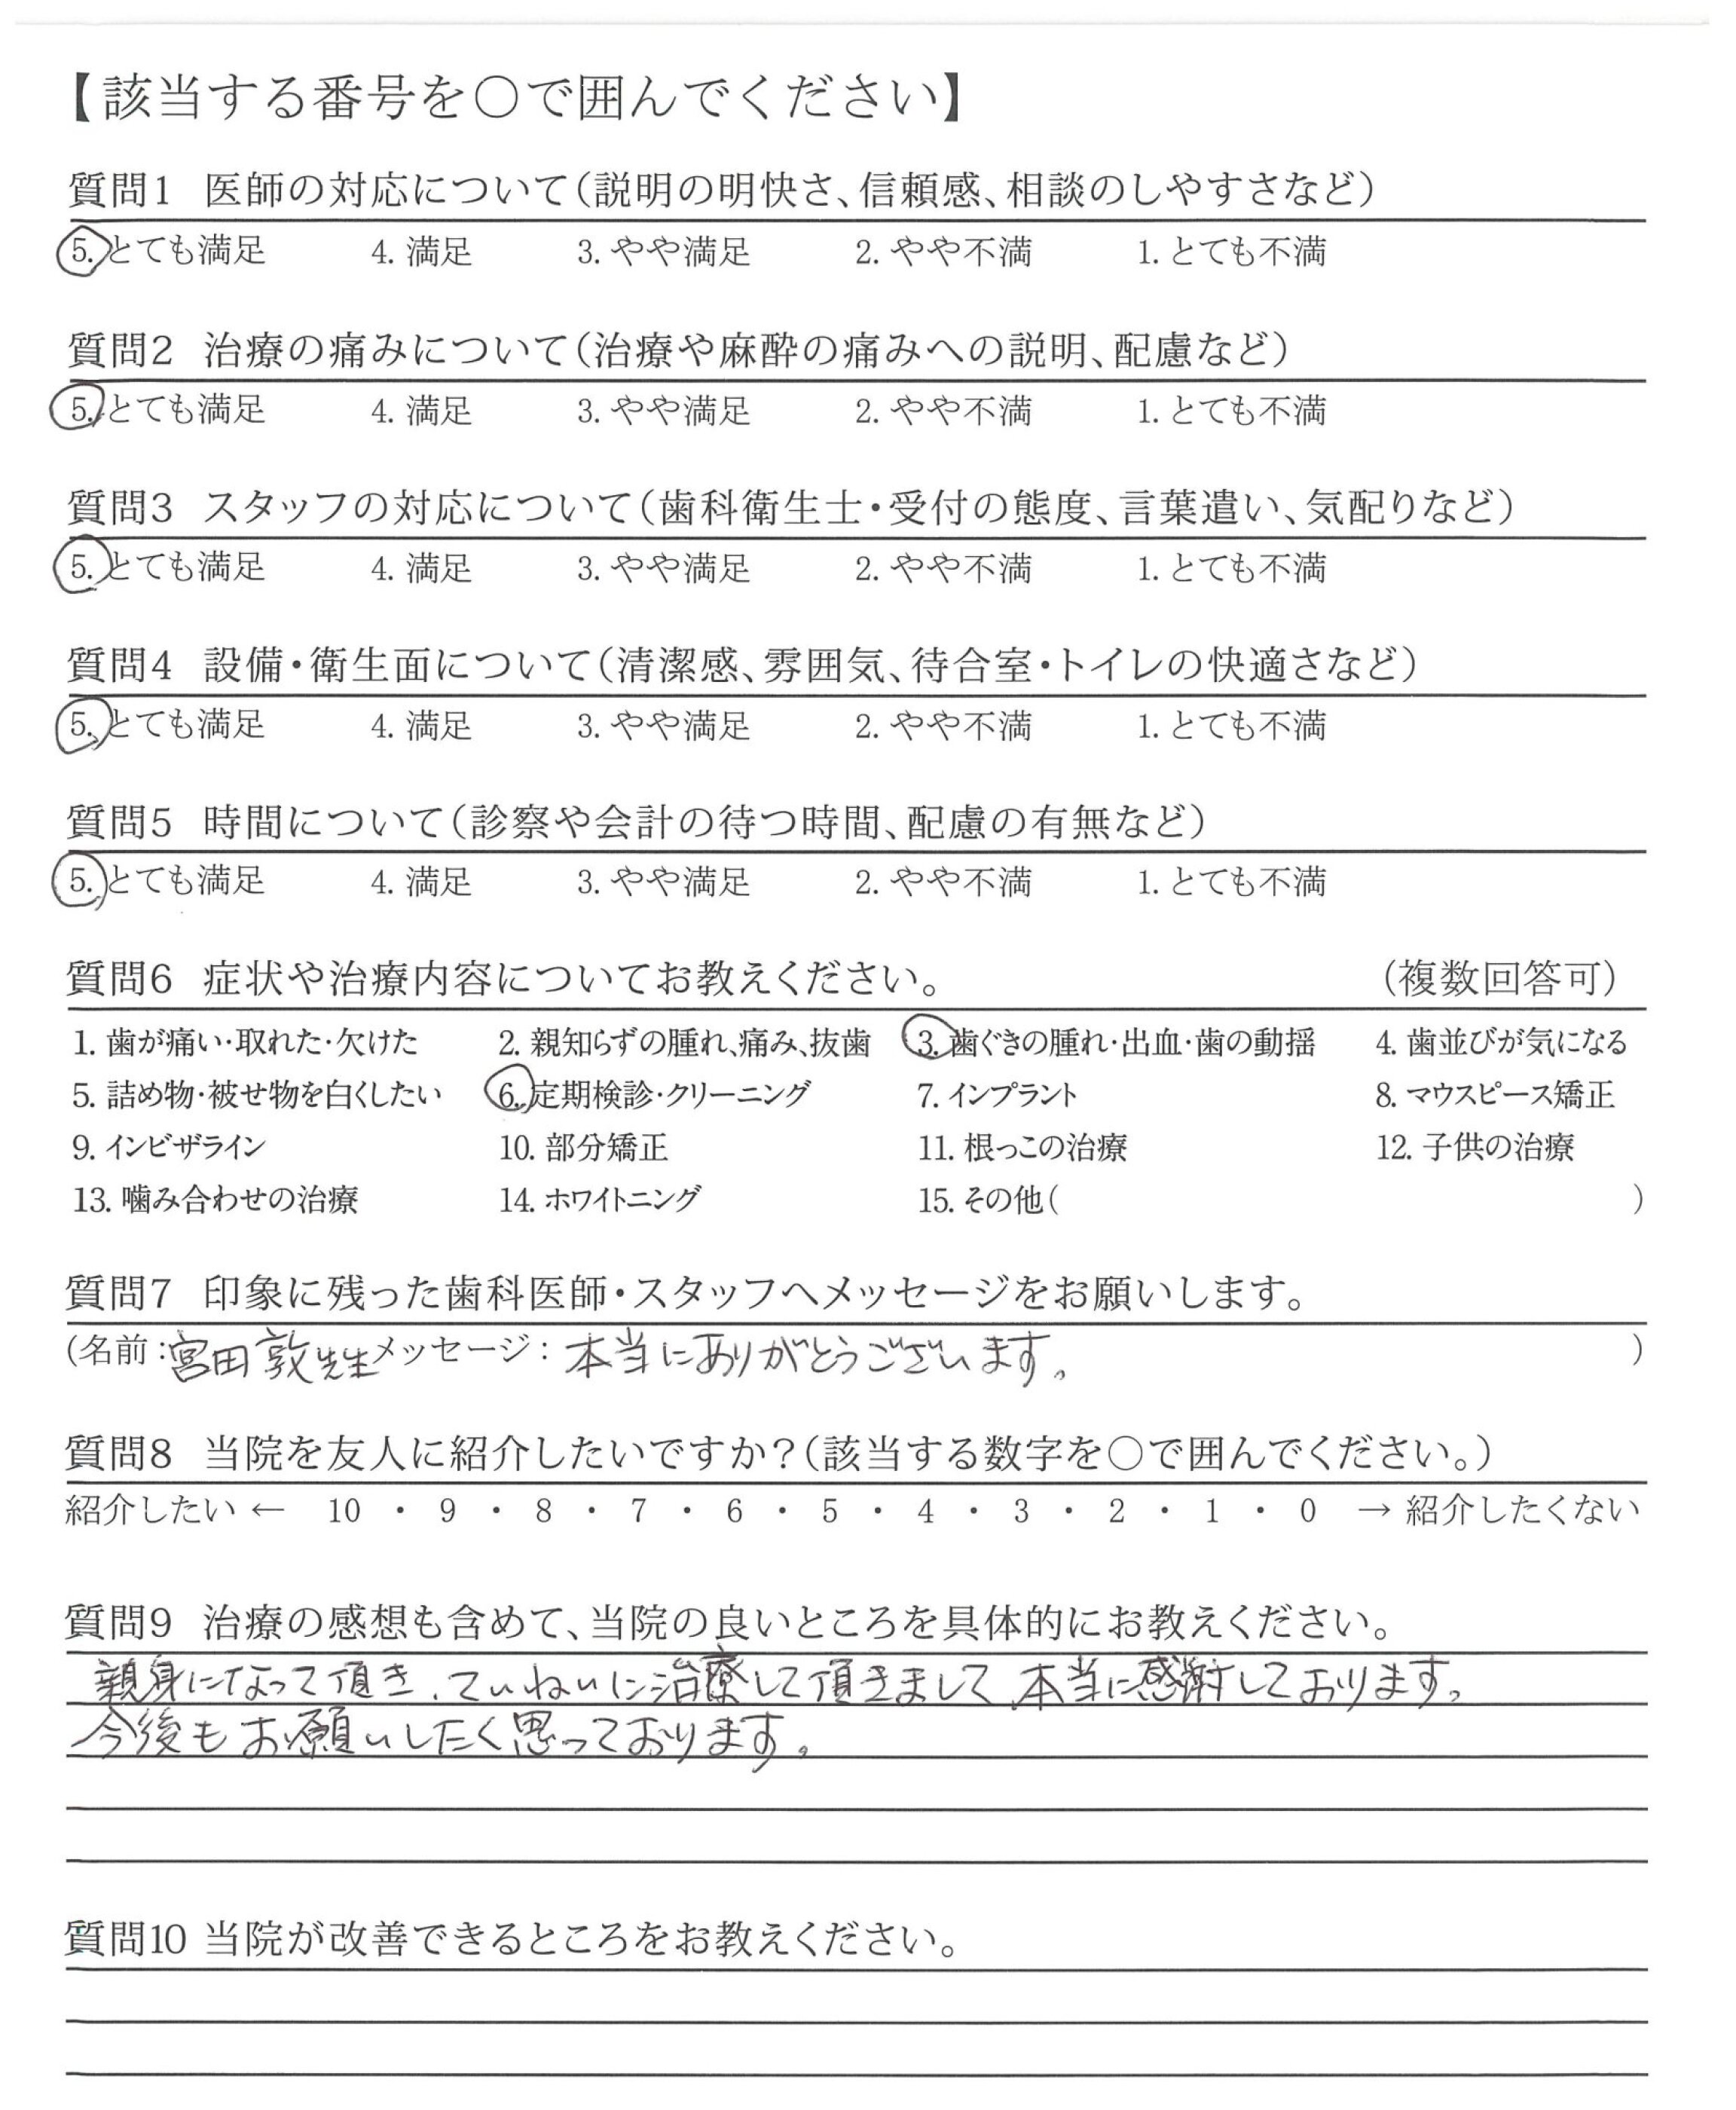 【該当する番号を○で囲んでください】
質問1 医師の対応について(説明の明快さ、信頼感、相談のしやすさなど)
5. とても満足 4. 満足 3. やや満足 2. やや不満 1. とても不満
質問2 治療の痛みについて(治療や麻酔の痛みへの説明、配慮など)
5. とても満足 4. 満足 3. やや満足 2. やや不満 1. とても不満
質問3 スタッフの対応について(歯科衛生士・受付の態度、言葉遣い、気配りなど)
5. とても満足 4. 満足 3. やや満足 2. やや不満 1. とても不満
質問4 設備・衛生面について(清潔感、雰囲気、待合室・トイレの快適さなど)
5. とても満足 4. 満足 3. やや満足 2. やや不満 1. とても不満
質問5 時間について(診察や会計の待つ時間、配慮の有無など)
5. とても満足 4. 満足 3. やや満足 2. やや不満 1. とても不満
質問6 症状や治療内容についてお教えください。 (複数回答可)
1. 歯が痛い・取れた・欠けた 2. 親知らずの腫れ、痛み、抜歯 3. 歯ぐきの腫れ・出血・歯の動揺 4. 歯並びが気になる
5. 詰め物・被せ物を白くしたい 6. 定期検診・クリーニング 7. インプラント 8. マウスピース矯正
9. インビザライン 10. 部分矯正 11. 根っこの治療 12. 子供の治療
13. 噛み合わせの治療 14. ホワイトニング 15. その他( )
質問7 印象に残った歯科医師・スタッフへメッセージをお願いします。
(名前：宮田敦先生 メッセージ：本当にありがとうございます。 )
質問8 当院を友人に紹介したいですか？(該当する数字を○で囲んでください。)
紹介したい ← 10 ・ 9 ・ 8 ・ 7 ・ 6 ・ 5 ・ 4 ・ 3 ・ 2 ・ 1 ・ 0 → 紹介したくない
質問9 治療の感想も含めて、当院の良いところを具体的にお教えください。
親身になって頂き、ていねいに治療して頂きまして、本当に感謝しております。
今後もお願いしたく思っております。
質問10 当院が改善できるところをお教えください。